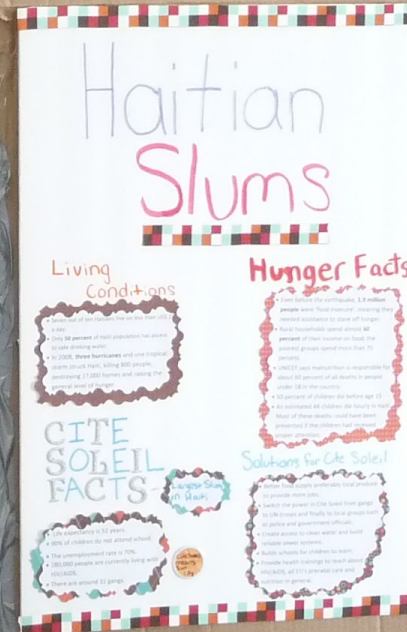 Haitian
Slums
Living
Conditions
Hunger Facts
• Seven out of ten Haitians live on less than US$
a day.
• Only 50 percent of Haiti population has access
to safe drinking water.
• In 2008, three hurricanes and one tropical
storm struck Haiti, killing 800 people,
destroying 17,000 homes and raising the
general level of hunger.
• Even before the earthquake, 1.9 million
people were "food insecure", meaning they
needed assistance to stave off hunger.
• Rural households spend almost 60
percent of their income on food, the
poorest groups spend more than 70
percent.
• UNICEF says malnutrition is responsible for
about 60 percent of all deaths in people
under 18 in the country.
• 50 percent of children die before age 15
• An estimated 44 children die hourly in Haiti.
Most of these deaths could have been
prevented if the children had received
proper attention.
CITE
SOLEIL
FACTS-
Largest Slum
in Haiti
• Life expectancy is 52 years.
• 90% of children do not attend school.
• The unemployment rate is 70%.
• 180,000 people are currently living with
HIV/AIDS.
• There are around 32 gangs.
Cite
means
Sun
City
Solutions for Cite Soleil
• Better food supply preferably local produce
to provide more jobs.
• Switch the power in Cite Soleil from gangs
to UN troops and finally to local groups such
as police and government officials.
• Create access to clean water and build
reliable sewer systems.
• Builds schools for children to learn.
• Provide health trainings to teach about
HIV/AIDS, all STI's prenatal care and
nutrition in general.